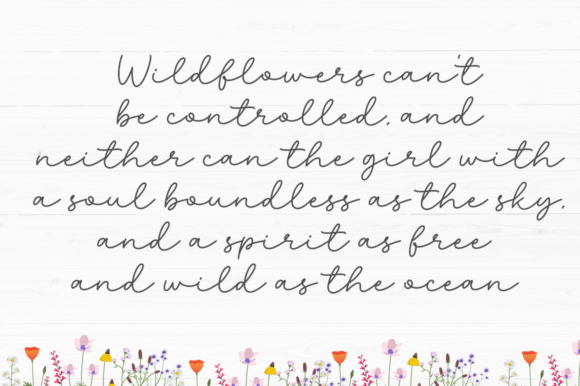 Wildflowers can't
be controlled, and
neither can the girl with
a soul boundless as the sky,
and a spirit as free
and wild as the ocean